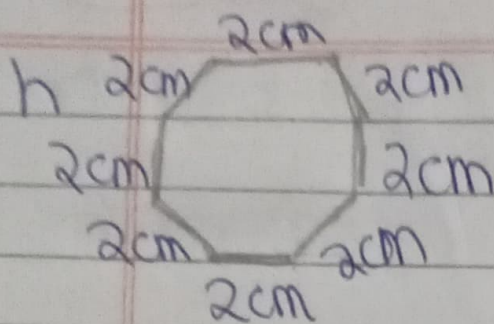 2cm
h 2cm 2cm
2cm 2cm
2cm 2cm
2cm